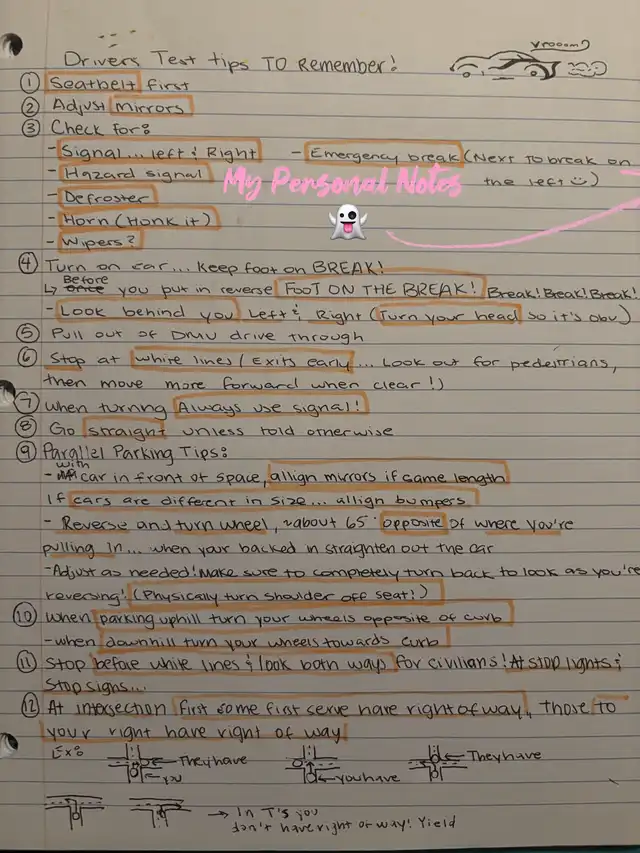 Drivers Test tips To Remember!
vrooom
① Seatbelt first
② Adjust Mirrors
③ Check for:
- Signal... left & Right - Emergency break (Next to break on the left ☺)
- Hazard signal
My Personal Notes
👻
- Defroster
- Horn (Honk it)
- Wipers?
④ Turn on car... keep foot on BREAK!
↳ Before you put in reverse FOOT ON THE BREAK! Break! Break! Break!
- Look behind you Left & Right (Turn your head so it's obv)
⑤ Pull out of DMV drive through
⑥ Stop at white lines / Exits early... Look out for pedestrians,
then move more forward when clear!)
⑦ When turning Always use signal!
⑧ Go straight unless told otherwise
⑨ Parallel Parking Tips:
- with car in front of space, allign mirrors if same length
If cars are different in size... allign bumpers
- Reverse and turn wheel, ~about 65° opposite of where you're
pulling in... when your backed in straighten out the car
- Adjust as needed! Make sure to completely turn back to look as you're
reversing! (Physically turn shoulder off seat!)
⑩ When parking uphill turn your wheels opposite of curb
- when downhill turn your wheels towards curb
⑪ Stop before white lines & look both ways for civilians! At stop lights &
stop signs...
⑫ At intersection first come first serve have right of way, Those to
your right have right of way
Ex:
← They have
← you
← you have
← They have
→ In T's you
don't have right of way! Yield